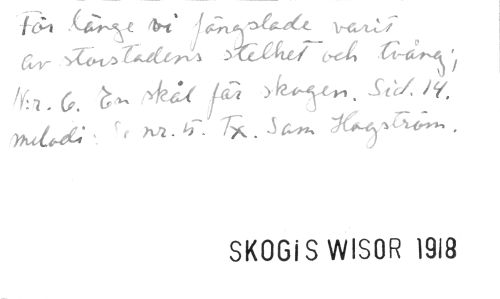 För länge vi fängslade varit
av storstadens stelhet och tvång;
N:r. 6. En skål för skogen. Sid. 14.
melodi: S. nr. 5. Tx. Sam Hagström.
SKOGIS WISOR 1918